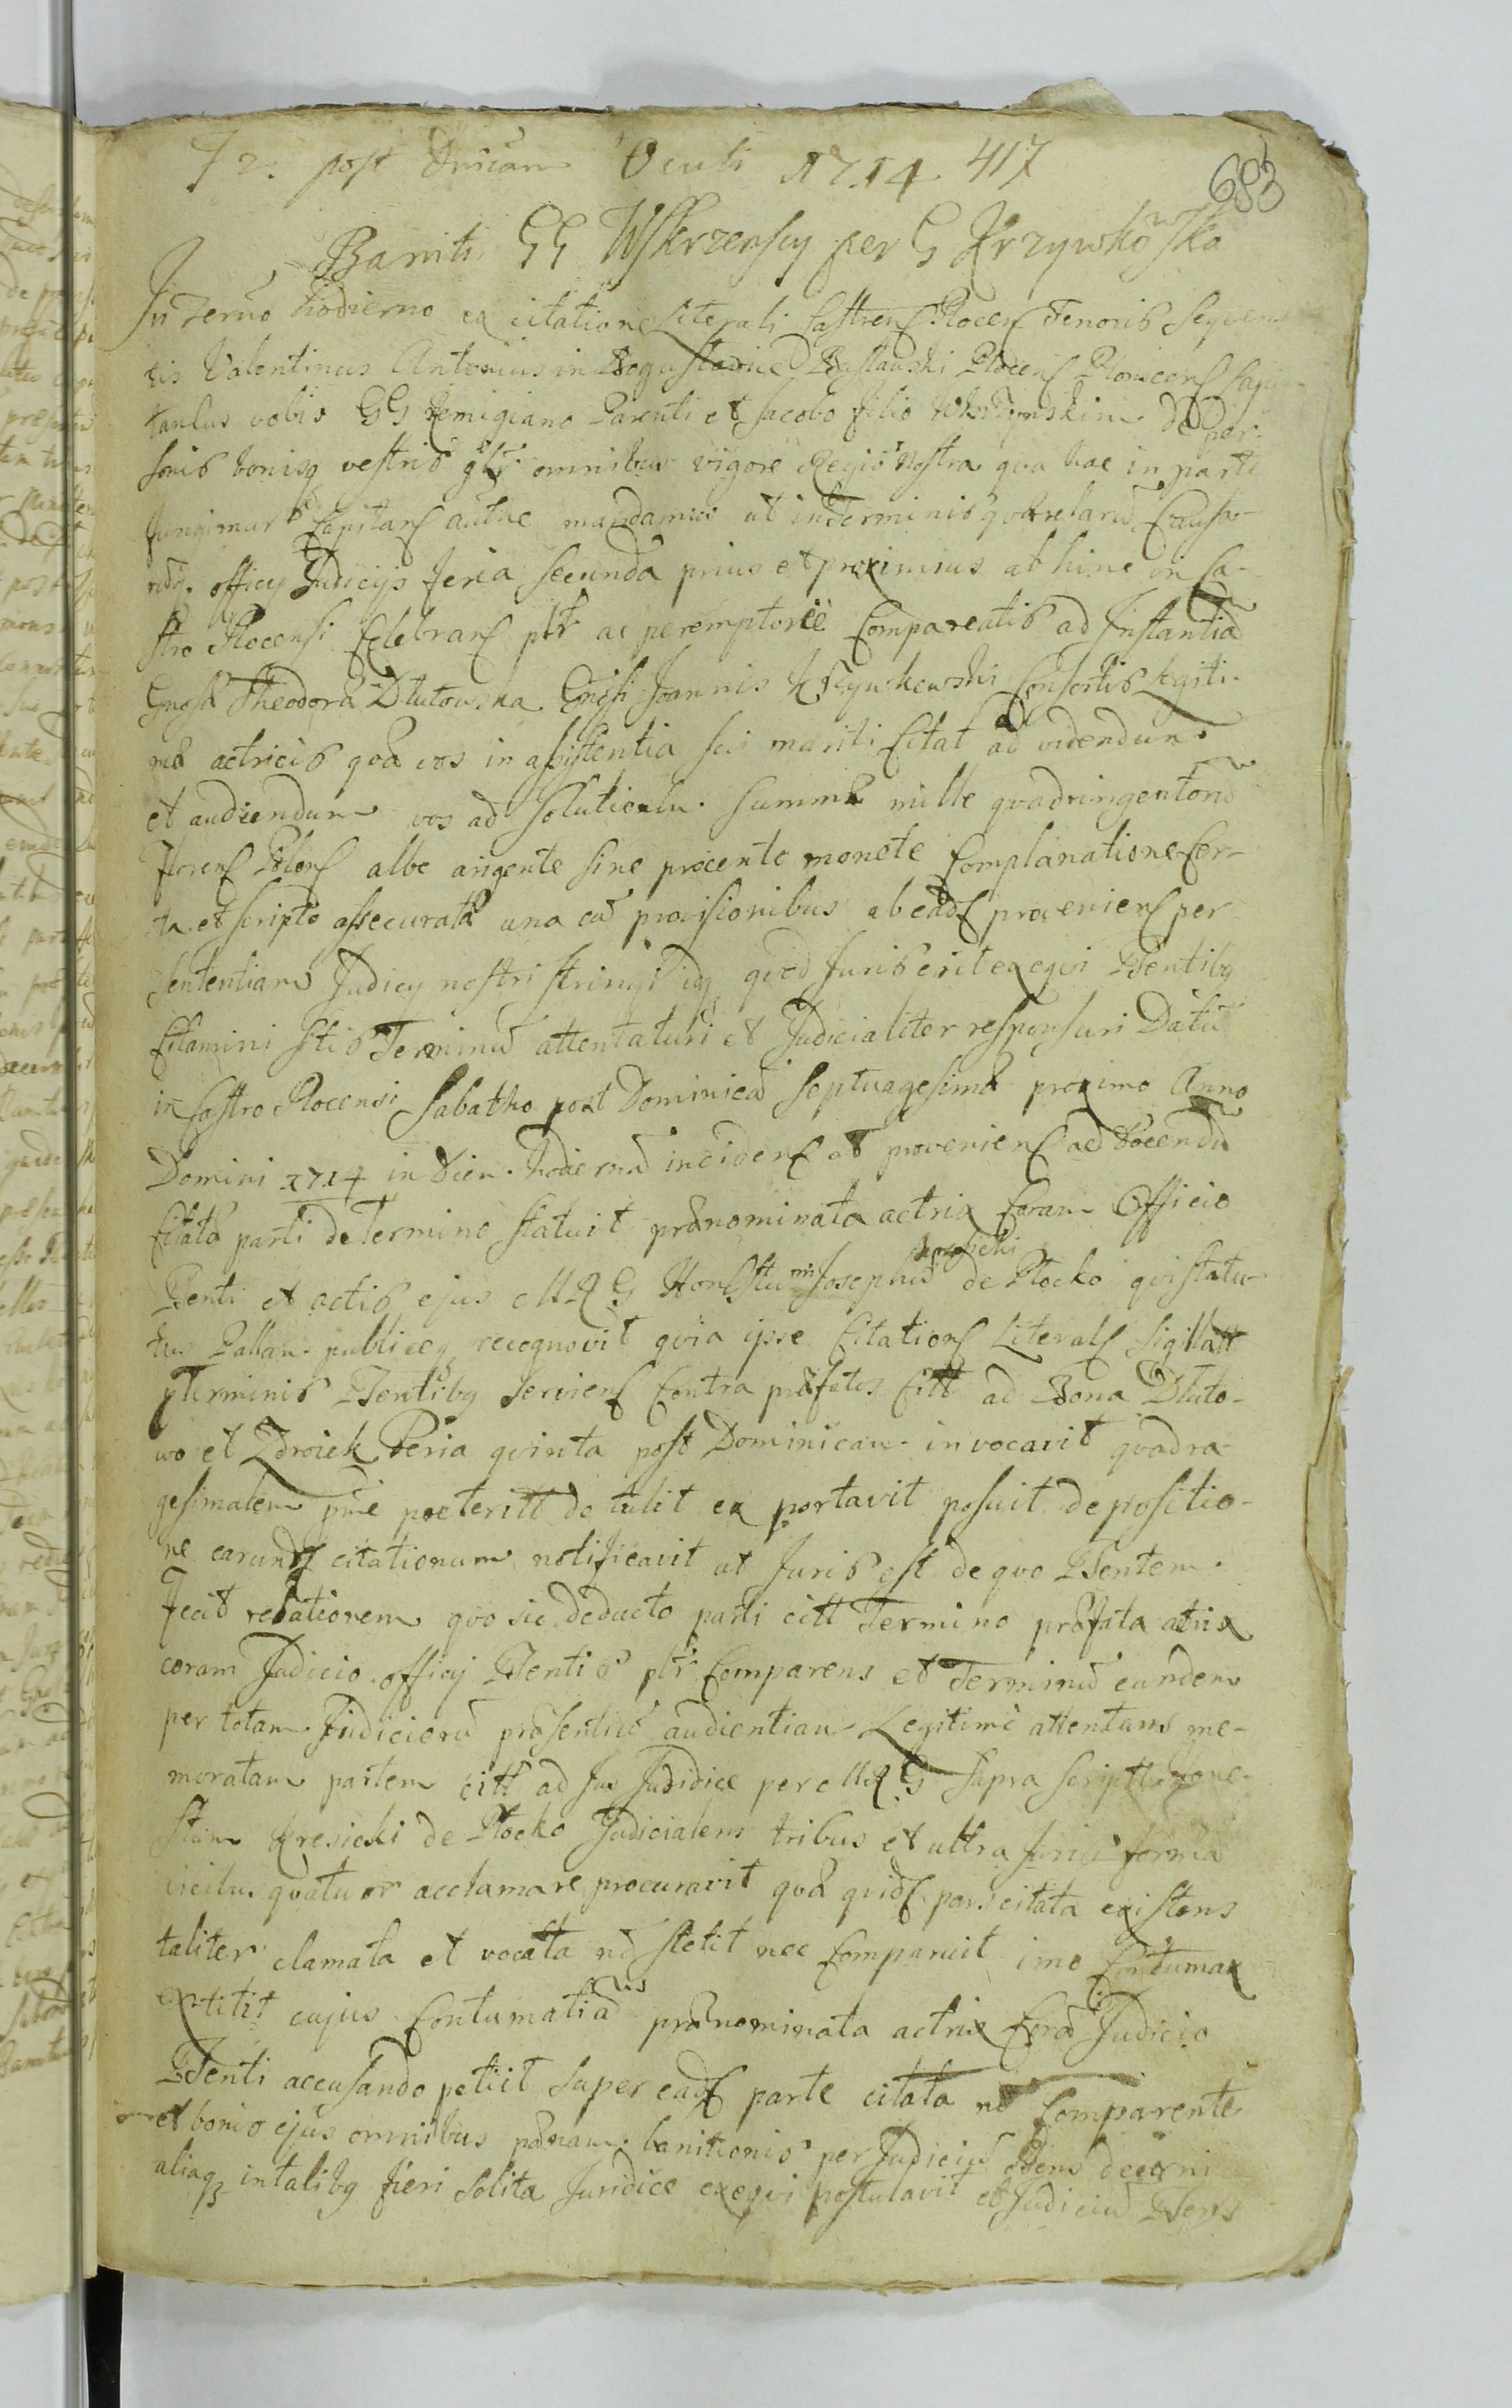 F 2. post Dnicam Oculi 1714. 417
683
Baniti GG Wskrzenscy per G Krzywkowska
In Termo hodierno ex citatione Literali Castrens Plocens Tenoris Sequen
tis Valentinus Antonius in Bogusławice Rusławski Plocens Plonscens Capi
taneus vobis GG Remigiano Parenti et Jacobo filio de per
sonis bonisq vestris glr omnibus vigore Regio nostra qua hac in parte
fungimur Capitans autne mandamus ut in Terminis qverelarũ Causa
rũq. officy Judicijs feria secunda prius et proximius ab hinc in Ca-
stro Plocensi Celebrans plr ac peremptorie Compareatis ad Instantiã
Gnosa Theodora Dlutowska Gnosi Joannis Krzywkowski Consortis Legiti-
ma actricis qva vos in assistentia sui mariti Citat ad videndum
et audiendum vos ad Solutionem Summa mille qvadringentorũ
florens Polons albe argente sine procento monete Complanatione Cer-
ta et scripto assecurata una cũ provisionibus ab eads proveniens per
Sententiam Judicy nostri stringi idq qvod Juris erit exeqvi PSentibq
Citamini Stis Terminũ attentaturi et Judicialiter responsuri Datũ
in Castro Plocensi Sabatho post Dominicã Septuagesima proximo Anno
Domini 1714 in diem hodiernã incidens et proveniens ad docendũ
Citata parti de Termino statuit prænominata actrix Coram Officio
PSenti et actis ejus MRG Honestum Josephũ Kresicki de Plocko qvi statu-
tus Pallam publiceq recognovit qvia ipse Citations Literals Sigillatt
Terminis PSentibq Serviens Contra præfatos Citt ad Bona Dluto-
wo et Zdroiek Feria qvinta post Dominicam invocavit qvadra-
gesimalem pme præteritt detulit ex portavit posuit depositio-
ne earunds citationum notificavit at Juris est de qvo PSentem
Fecit relationem qvo sic deducto parti citt Termino præfata atrix
coram Judicio officij PSentis plr Comparens et Terminũ eundem
per totam Judiciorũ præsentiũ audientiam Legitime attentans me-
moratam partem citt ad Jus Juridice per MRG Supra Scriptt Hone-
stum Kresicki de Plocko Judicialem tribus et ultra Juris forma
vicibus qvatuor acclamare procuravit qva qvids pars citata existens
taliter clamata et vocata nõ stetit nec Comparuit imo Contumax
extitit cujus Contumatiã prænominata actrix Corã Judicio
PSenti accusando petiit super eads parte citata nõ Comparente
et bonis ejus omnibus pænam banitionis per Judiciũ PSens decerni
aliaq in talibq fieri Solita Juridice exeqvi postulavit et Judiciũ PSens